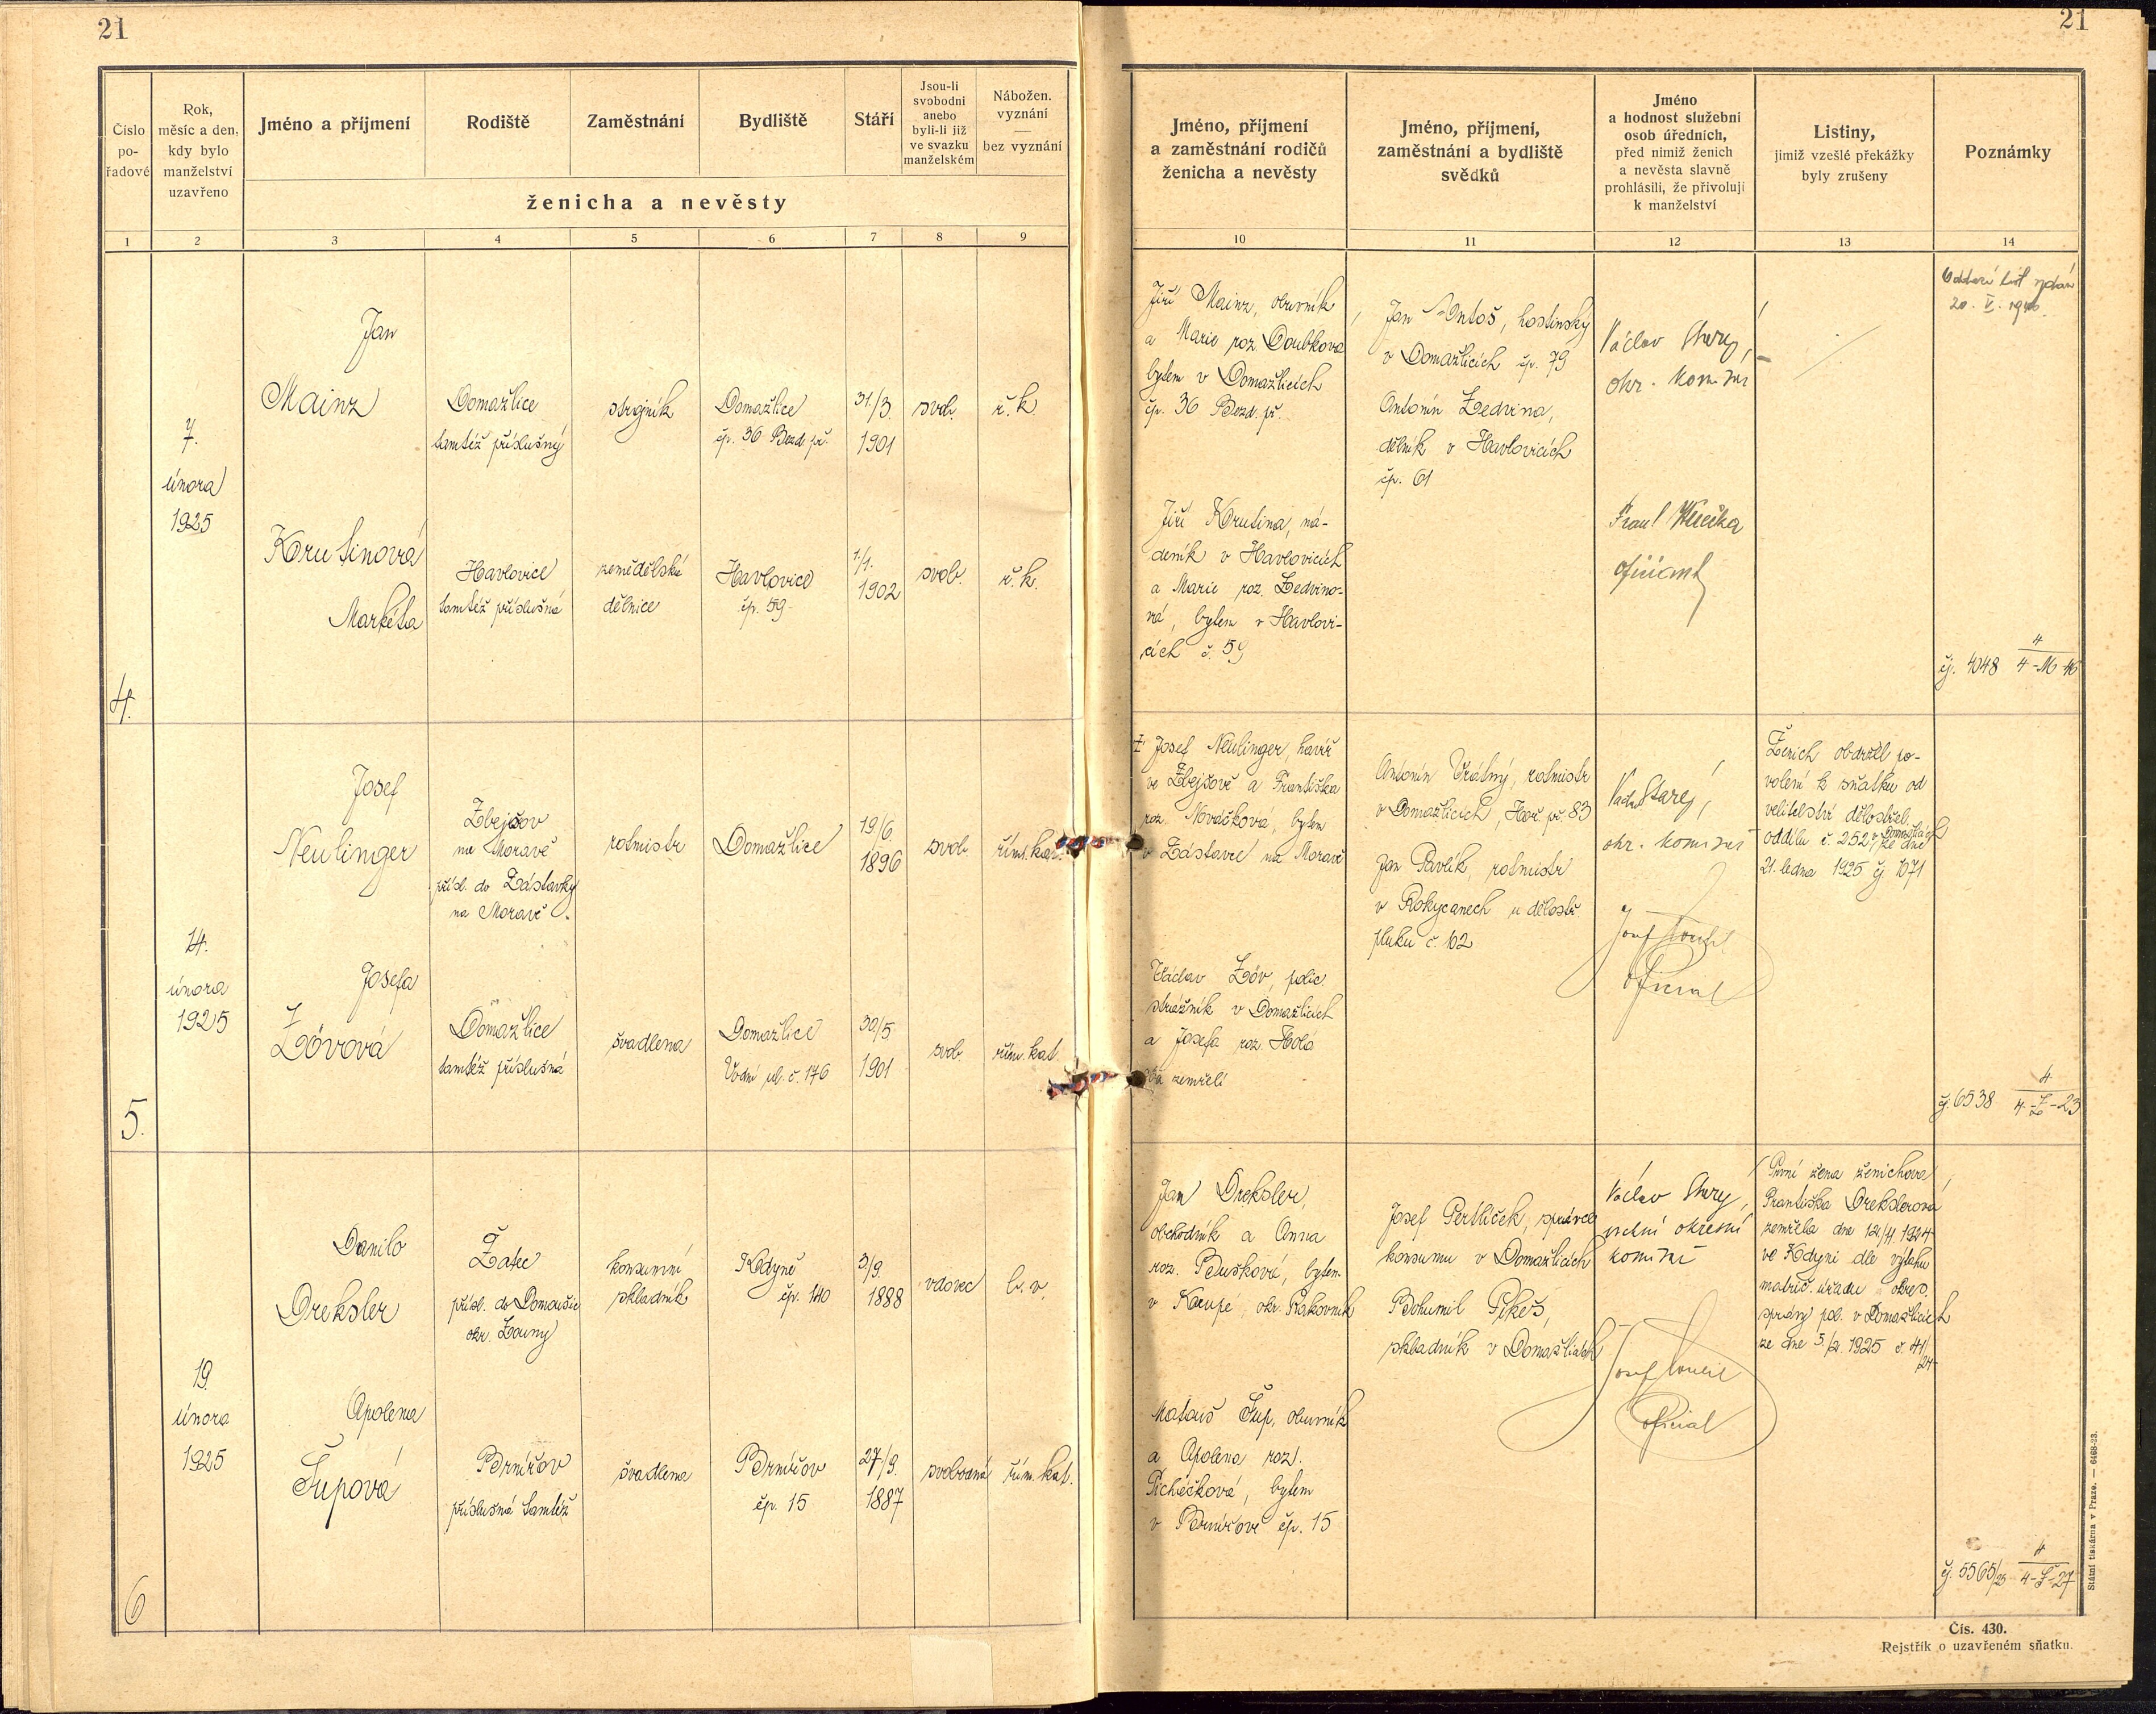 21
21
Číslo
po-
řadové
Rok,
měsíc a den,
kdy bylo
manželství
uzavřeno
Jméno a příjmení
Rodiště
Zaměstnání
Bydliště
Stáří
Jsou-li
svobodni
anebo
byli-li již
ve svazku
manželském
Nábožen.
vyznání
—
bez vyznání
ženicha a nevěsty
Jméno, příjmení
a zaměstnání rodičů
ženicha a nevěsty
Jméno, příjmení,
zaměstnání a bydliště
svědků
Jméno
a hodnost služební
osob úředních,
před nimiž ženich
a nevěsta slavně
prohlásili, že přivolují
k manželství
Listiny,
jimiž vzešlé překážky
byly zrušeny
Poznámky
1 2 3 4 5 6 7 8 9 10 11 12 13 14
4.
7.
února
1925
Jan
Mainz
Domažlice
tamtéž příslušný
strojník
Domažlice
čp. 36 Bezd. př.
31./3.
1901
svob.
ř. k.
Krutinová
Markéta
Havlovice
tamtéž příslušná
zemědělská
dělnice
Havlovice
čp. 59
1./1.
1902
svob.
ř. k.
Jiří Mainz, obuvník
a Marie roz. Doubková
bytem v Domažlicích
čp. 36 Bezd. př.
Jiří Krutina, ná-
deník v Havlovicích
a Marie roz. Ledvino-
vá, bytem v Havlovi-
cích č. 59
Jan Antoš, hostinský
v Domažlicích čp. 79
Antonín Ledvina,
dělník v Havlovicích
čp. 61
Václav
okr. komisař
oficiant
Oddací list vydán
20. V. 1940.
čj. 4048 4/4-M-16
5.
14.
února
1925
Josef
Neulinger
Zbejšov
na Moravě
přísl. do Zástavky
na Moravě.
rotmistr
Domažlice
19/6.
1896
svob.
řím. kat.
Josefa
Lövová
Domažlice
tamtéž příslušná
švadlena
Domažlice
Vodní ul. č. 176
30/5.
1901
svob.
řím. kat.
Josef Neulinger, havíř
ve Zbejšově a Františka
roz. Nováčková, bytem
v Zástavce na Moravě
Václav Löv, polic.
strážník v Domažlicích
a Josefa roz. Holá
oba zemřelí
Antonín Vrátný, rotmistr
v Domažlicích, Hoř. př. 83
Jan Pavlík, rotmistr
v Rokycanech u dělostř.
pluku č. 102
okr. komisař
Josef
Oficial
Ženich obdržel po-
volení k sňatku od
velitelství dělostřel.
oddílu č. 252 v Domažlicích
ze dne
21. ledna 1925 čj. 1071
čj. 6538 4/4-L-23
6
19.
února
1925
Danilo
Dreksler
Žatec
přísl. do Domoušic
okr. Louny
konsumní
skladník
Kdyně
čp. 140
3/9.
1888
vdovec
b. v.
Apolena
Šupová
Brnířov
příslušná tamtéž
švadlena
Brnířov
čp. 15
27/9.
1887
svobodná
řím. kat.
Jan Dreksler,
obchodník a Anna
roz. Peušková, bytem
v Krupé, okr. Rakovník
Matouš Šup, obuvník
a Apolena roz.
bytem
v Brnířově čp. 15
Josef Pertlíček, správce
konsumu v Domažlicích
Bohumil Pikeš,
skladník v Domažlicích
Václav
vrchní okresní
komisař
Josef
Oficial
První žena ženichova
Františka Drekslerová
zemřela dne 12/4 1924
ve Kdyni dle výtahu
matrič. úřadu okres.
správy pol. v Domažlicích
ze dne 5./2. 1925 č. 41/24
čj. 5565/25 4/4-Š-27
Čís. 430.
Rejstřík o uzavřeném sňatku.
Státní tiskárna v Praze. — 6468-23.